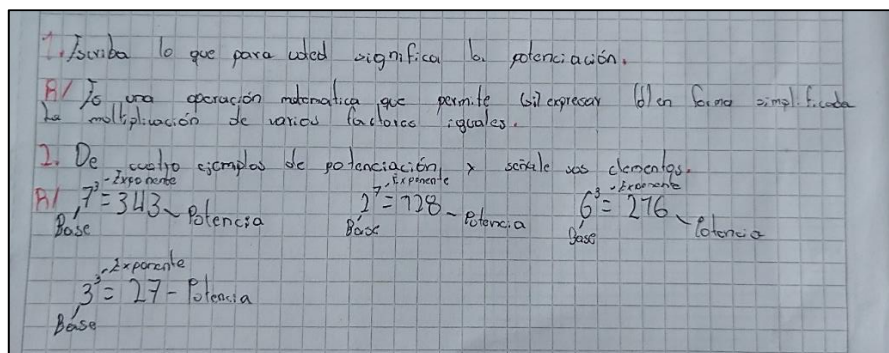 1. Escriba lo que para usted significa la potenciación.
R/ Es una operación matematica que permite (si) expresar (d) en forma simplificada
La multiplicación de varios factores iguales.
2. De cuatro ejemplos de potenciación y señale sus elementos.
Exponente Exponente Exponente
R/ 7³ = 343 - Potencia 2⁷ = 128 - Potencia 6³ = 216 - Potencia
Base Base Base
Exponente
3³ = 27 - Potencia
Base